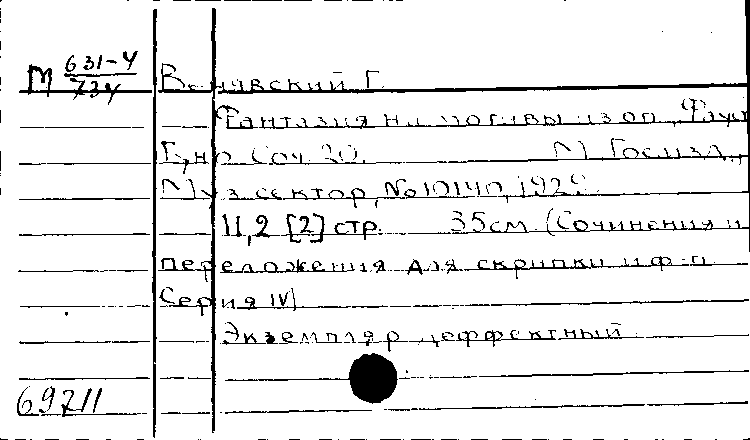 М 631-4
734
Венявский Г.
Фантазия на мотивы из оп. „Фауст
Гуно Соч. 20. М. Госизд.,
Муз сектор, №10140, 192
11,2 [2] стр. 35см. (Сочинения и
переложения для скрипки и ф-п
Серия IV)
Экземпляр деффектный
69711